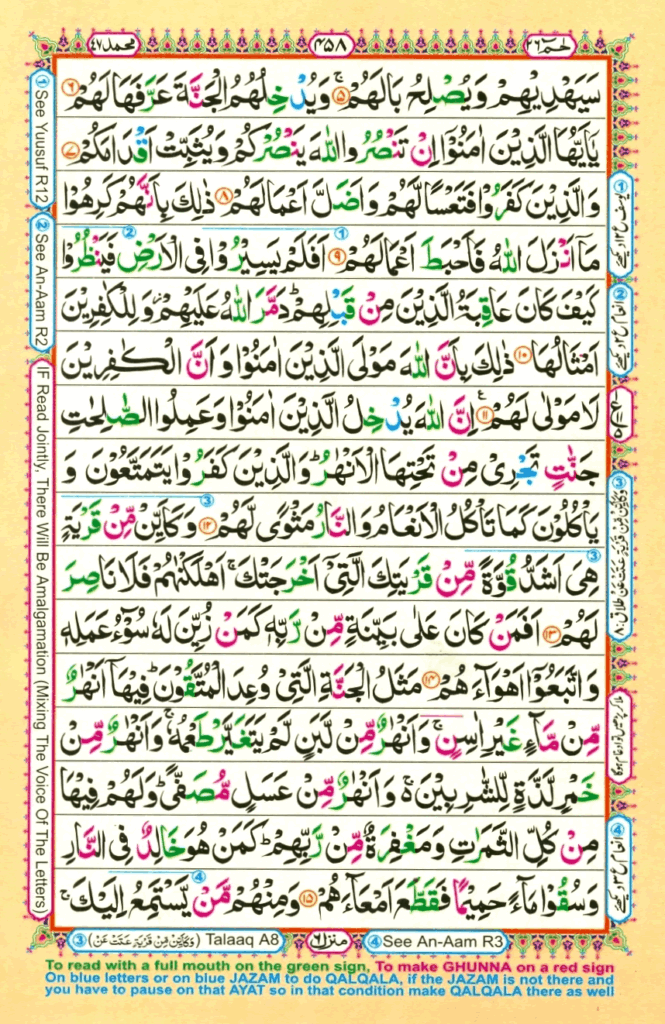 محمد ٤٧
٤٥٨
حٰمٓ ٢٦
سَيَهْدِيْهِمْ وَيُصْلِحُ بَالَهُمْ ۚ‏﴿۵﴾ وَيُدْخِلُهُمُ الْجَنَّةَ عَرَّفَهَا لَهُمْ ‏﴿۶﴾
يٰۤاَيُّهَا الَّذِيْنَ اٰمَنُوْۤا اِنْ تَنْصُرُوا اللّٰهَ يَنْصُرْكُمْ وَيُثَبِّتْ اَقْدَامَكُمْ ‏﴿۷﴾
وَالَّذِيْنَ كَفَرُوْا فَتَعْسًا لَّهُمْ وَاَضَلَّ اَعْمَالَهُمْ ‏﴿۸﴾ ذٰلِكَ بِاَنَّهُمْ كَرِهُوْا
مَاۤ اَنْزَلَ اللّٰهُ فَاَحْبَطَ اَعْمَالَهُمْ ‏﴿۹﴾ اَفَلَمْ يَسِيْرُوْا فِى الْاَرْضِ فَيَنْظُرُوْا
كَيْفَ كَانَ عَاقِبَةُ الَّذِيْنَ مِنْ قَبْلِهِمْ ؕ دَمَّرَ اللّٰهُ عَلَيْهِمْ ؗ وَلِلْكٰفِرِيْنَ
اَمْثَالُهَا ‏﴿۱۰﴾ ذٰلِكَ بِاَنَّ اللّٰهَ مَوْلَى الَّذِيْنَ اٰمَنُوْا وَاَنَّ الْكٰفِرِيْنَ
لَا مَوْلٰى لَهُمْ ‏﴿۱۱﴾ اِنَّ اللّٰهَ يُدْخِلُ الَّذِيْنَ اٰمَنُوْا وَعَمِلُوا الصّٰلِحٰتِ
جَنّٰتٍ تَجْرِىْ مِنْ تَحْتِهَا الْاَنْهٰرُ ؕ وَالَّذِيْنَ كَفَرُوْا يَتَمَتَّعُوْنَ وَ
يَاْكُلُوْنَ كَمَا تَاْكُلُ الْاَنْعَامُ وَالنَّارُ مَثْوًى لَّهُمْ ‏﴿۱۲﴾ وَكَاَيِّنْ مِّنْ قَرْيَةٍ
هِىَ اَشَدُّ قُوَّةً مِّنْ قَرْيَتِكَ الَّتِىْۤ اَخْرَجَتْكَ ۚ اَهْلَكْنٰهُمْ فَلَا نَاصِرَ
لَهُمْ ‏﴿۱۳﴾ اَفَمَنْ كَانَ عَلٰى بَيِّنَةٍ مِّنْ رَّبِّهٖ كَمَنْ زُيِّنَ لَهٗ سُوْٓءُ عَمَلِهٖ
وَاتَّبَعُوْۤا اَهْوَآءَهُمْ ‏﴿۱۴﴾ مَثَلُ الْجَنَّةِ الَّتِىْ وُعِدَ الْمُتَّقُوْنَ ؕ فِيْهَاۤ اَنْهٰرٌ
مِّنْ مَّآءٍ غَيْرِ اٰسِنٍ ۚ وَاَنْهٰرٌ مِّنْ لَّبَنٍ لَّمْ يَتَغَيَّرْ طَعْمُهٗ ۚ وَاَنْهٰرٌ مِّنْ
خَمْرٍ لَّذَّةٍ لِّلشّٰرِبِيْنَ ۚ۬ وَاَنْهٰرٌ مِّنْ عَسَلٍ مُّصَفًّى ؕ وَلَهُمْ فِيْهَا
مِنْ كُلِّ الثَّمَرٰتِ وَمَغْفِرَةٌ مِّنْ رَّبِّهِمْ ؕ كَمَنْ هُوَ خَالِدٌ فِى النَّارِ
وَسُقُوْا مَآءً حَمِيْمًا فَقَطَّعَ اَمْعَآءَهُمْ ‏﴿۱۵﴾ وَمِنْهُمْ مَّنْ يَّسْتَمِعُ اِلَيْكَ ۚ
① See Yuusuf R12
② See An-Aam R2
IF Read Jointly, There Will Be Amalgamation (Mixing The Voice Of The Letters)
③ (وَكَاَيِّنْ مِّنْ قَرْيَةٍ عَتَتْ عَنْ) Talaaq A8
منزل ٦
④ See An-Aam R3
To read with a full mouth on the green sign, To make GHUNNA on a red sign
On blue letters or on blue JAZAM to do QALQALA, if the JAZAM is not there and
you have to pause on that AYAT so in that condition make QALQALA there as well